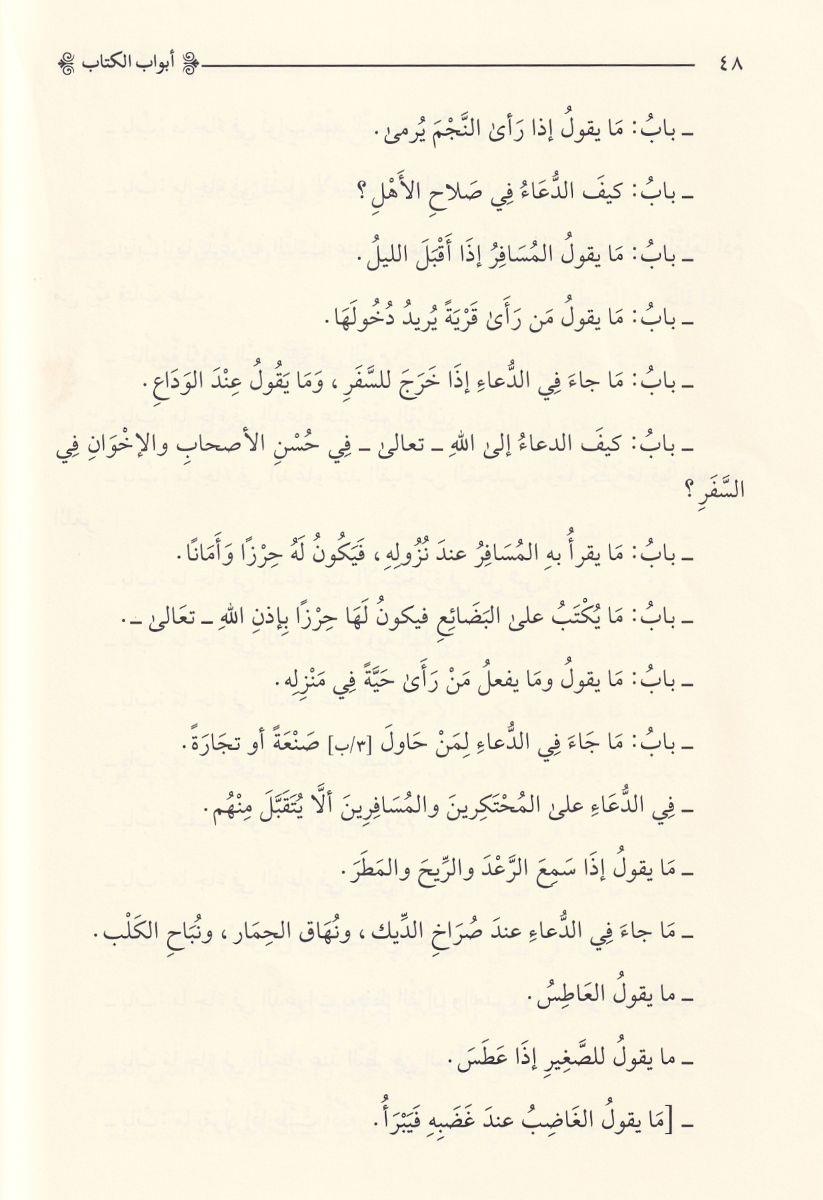 ٤٨ أبواب الكتاب
ـ بابُ: مَا يقولُ إذا رَأىٰ النَّجْمَ يُرمىٰ.
ـ بابُ: كيفَ الدُّعَاءُ فِي صَلاحِ الأَهْلِ؟
ـ بابُ: مَا يقولُ المُسَافِرُ إذَا أَقْبَلَ الليلُ.
ـ بابُ: مَا يقولُ مَن رَأَىٰ قَرْيَةً يُريدُ دُخُولَهَا.
ـ بابُ: مَا جاءَ فِي الدُّعاءِ إذَا خَرَجَ للسَّفَرِ، وَمَا يَقُولُ عِنْدَ الوَدَاعِ.
ـ بابُ: كيفَ الدعاءُ إلىٰ اللهِ ـ تعالىٰ ـ فِي حُسْنِ الأصحابِ والإخْوَانِ فِي
السَّفَرِ؟
ـ بابُ: مَا يقرأُ بهِ المُسَافِرُ عندَ نُزُولِهِ، فَيَكُونُ لَهُ حِرْزًا وَأَمَانًا.
ـ بابُ: مَا يُكْتَبُ علىٰ البَضَائِعِ فيكونُ لَهَا حِرْزًا بِإذنِ اللهِ ـ تعَالىٰ ـ.
ـ بابُ: مَا يقولُ ومَا يفعلُ مَنْ رَأَىٰ حَيَّةً فِي مَنْزِلِه.
ـ بابُ: مَا جَاءَ فِي الدُّعاءِ لِمَنْ حَاولَ [٣/ب] صَنْعَةً أو تجَارَةً.
ـ فِي الدُّعَاءِ علىٰ المُحْتَكِرينَ والمُسَافِرِينَ ألَّا يُتَقَبَّلَ مِنْهُم.
ـ مَا يقولُ إذَا سَمِعَ الرَّعْدَ والرِّيحَ والمَطَرَ.
ـ مَا جاءَ فِي الدُّعاءِ عندَ صُرَاخِ الدِّيك، ونُهَاق الحِمَار، ونُبَاحِ الكَلْب.
ـ ما يقولُ العَاطِسُ.
ـ ما يقولُ للصَّغِيرِ إذَا عَطَسَ.
ـ [مَا يقولُ الغَاضِبُ عندَ غَضَبِهِ فَيَبْرَأُ.